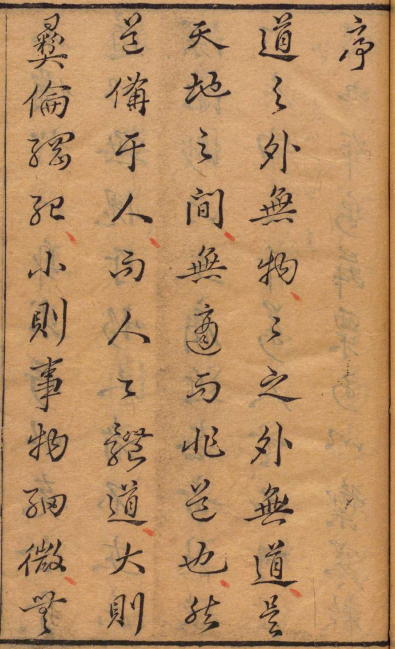 序
道之外無物〻之外無道是
天地之間無適而非道也然
道備于人而人〻體道大則
彝倫綱紀小則事物細微無